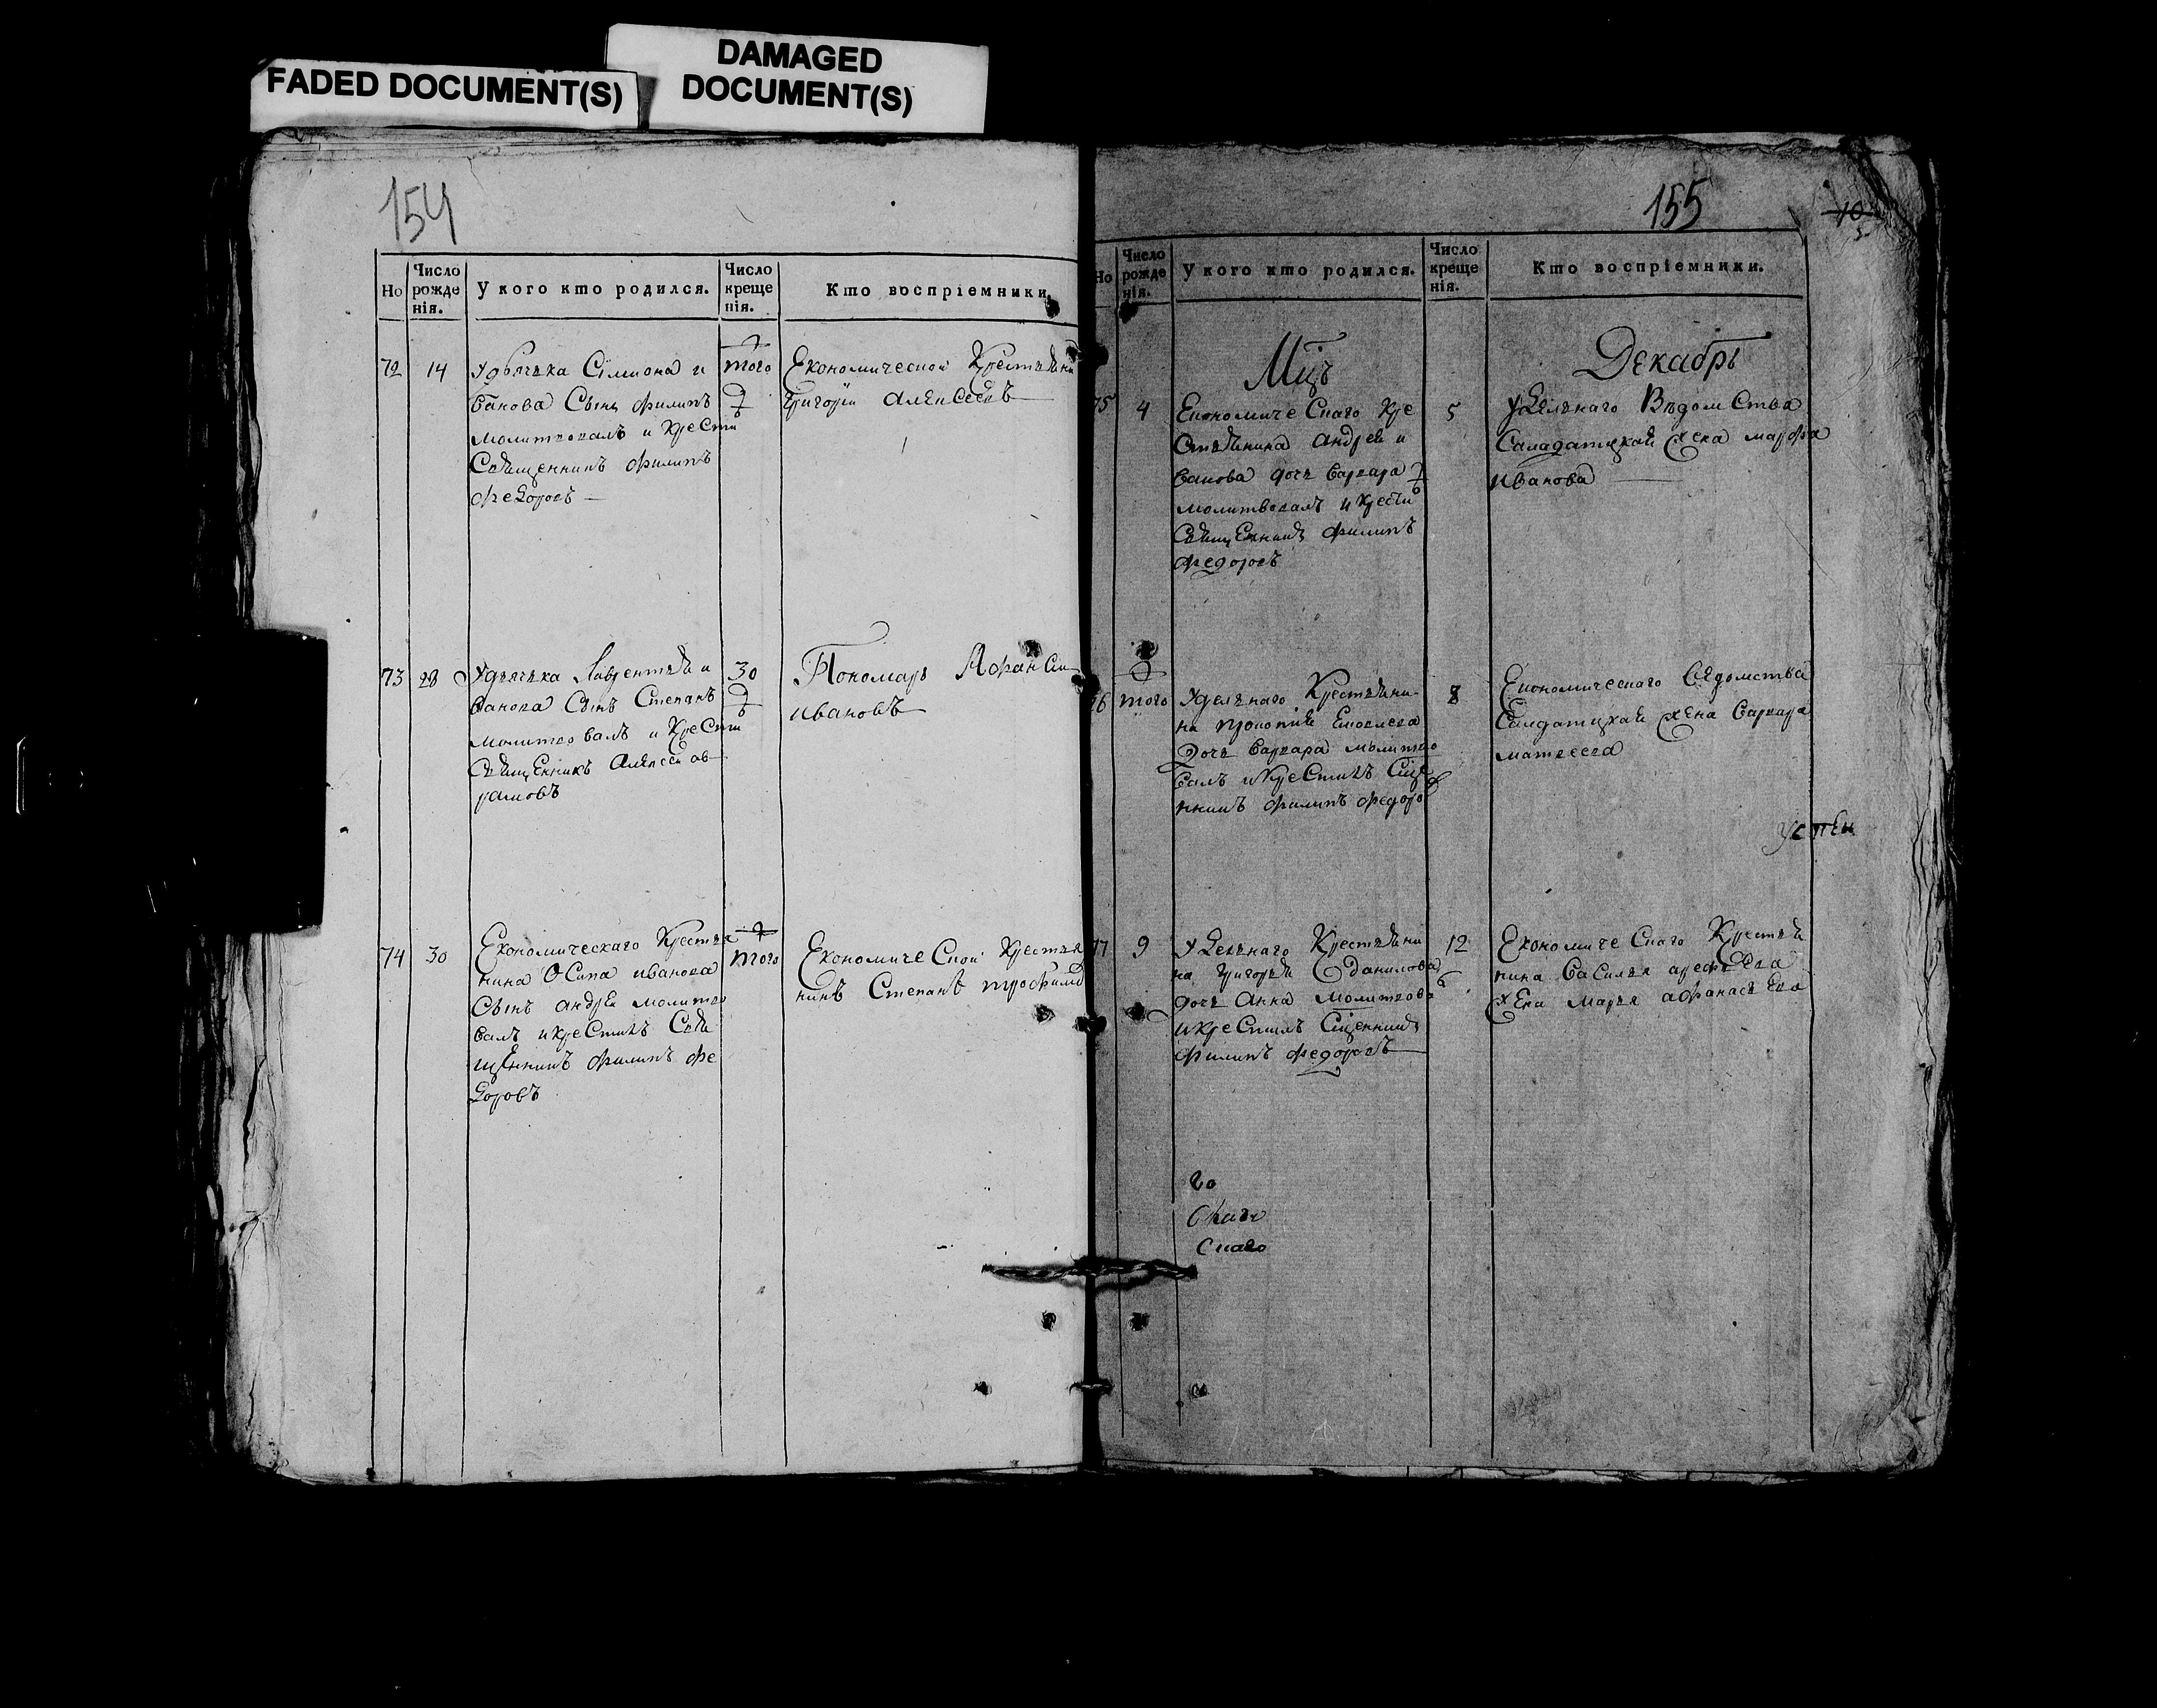 FADED DOCUMENT(S)
DAMAGED
DOCUMENT(S)
154
Но
Число
рожде
нія.
У кого кто родился.
Число
креще
нія.
Кто воспріемники.
72
14
У дьячька Сімиона и
ванова Сынъ филипъ
молитвовалъ и крести
Священникъ филипъ
федоровъ
того
Економической Крестьяни
григорій алексеевъ
73
28
У дьячька Лаврентья и
ванова Сынъ Степанъ
молитвовалъ и крести
Священникъ алексей ав
рамовъ
30
Пономарь Афанси
ивановъ
74
30
Економическаго Крестья
нина Осипа иванова
Сынъ андрей молитво
валъ и крестилъ Свя
щенникъ филипъ фе
доровъ
того
Економической Крестья
нинъ Степанъ трофимо
155
10
Но
Число
рожде
нія.
У кого кто родился.
Число
креще
нія.
Кто воспріемники.
Мцъ
Декабрь
75
4
Економическаго кре
стьянина андрея и
ванова дочь варвара
молитвовалъ и крести
Священникъ филипъ
федоровъ
5
Удельнаго Вѣдомства
Салдатцкая жена марфа
иванова
76
того
Удельнаго Крестьяни
на прокопия
Дочь варвара молитво
валъ и крестилъ Сще
нникъ филипъ федоро
8
Економическаго ведомства
Салдатцкая жена варвара
матвеева
успен
77
9
Удельнаго Крестьяни
на григорья данилова
дочь анна молитвова
и крестилъ Сщенникъ
филипъ федоровъ
12
Економическаго Крестья
нина василья арефьева
жена марья афанасьева
го
скаго